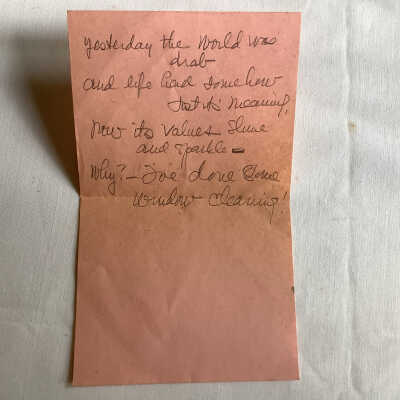 Yesterday the World was
drab
and life had somehow
lost its meaning,
Now its values Shine
and sparkle –
Why? – I've done Some
window cleaning!